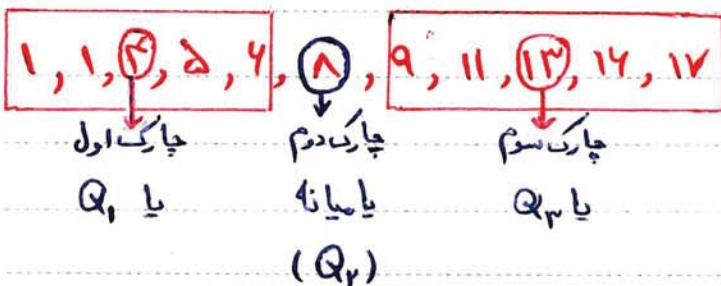 ۱ , ۱ , ۴ , ۵ , ۶ , ۸ , ۹ , ۱۱ , ۱۳ , ۱۶ , ۱۷
چارک اول
یا Q۱
چارک دوم
یا میانه
(Q۲)
چارک سوم
یا Q۳